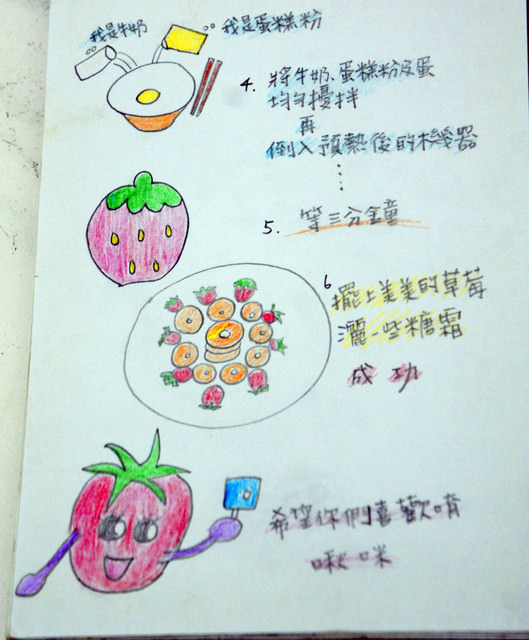 我是牛奶
我是蛋糕粉
4. 將牛奶、蛋糕粉及蛋
均勻擾拌
再
倒入預熱後的機器
⋮
5. 等三分鐘
6 擺上美美的草莓
灑一些糖霜
成功
希望你們喜歡唷
啾咪